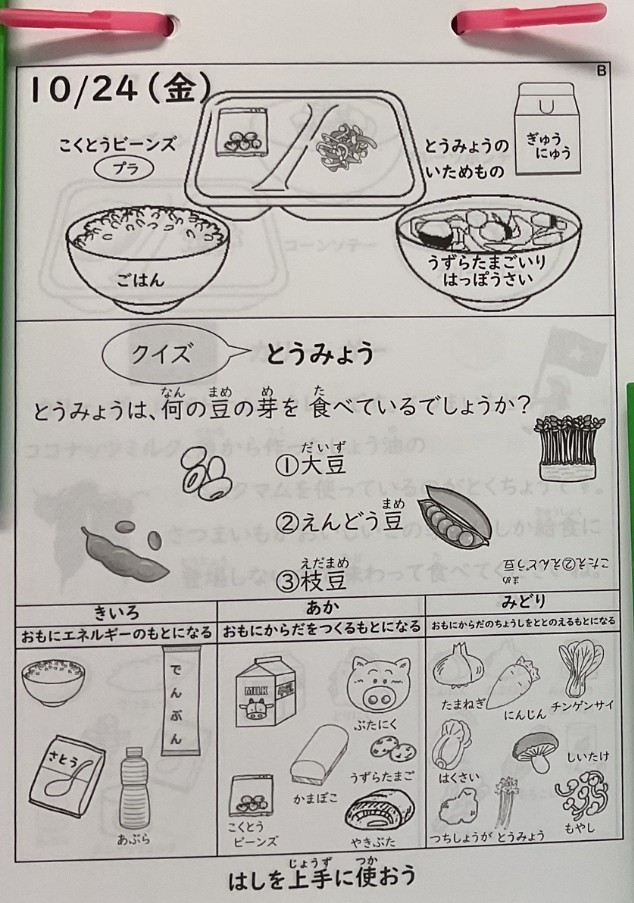 B
10/24(金)
こくとうビーンズ
プラ
とうみょうの
いためもの
ぎゅう
にゅう
ごはん
うずらたまごいり
はっぽうさい
クイズ
とうみょう
なん まめ め た
とうみょうは、何の豆の芽を食べているでしょうか？
だいず
①大豆
まめ
②えんどう豆
えだまめ
③枝豆
まめ
こたえ②えんどう豆
きいろ
おもにエネルギーのもとになる
でんぷん
さとう
あぶら
あか
おもにからだをつくるもとになる
MILK
ぶたにく
かまぼこ
うずらたまご
こくとう
ビーンズ
やきぶた
みどり
おもにからだのちょうしをととのえるもとになる
たまねぎ
にんじん
チンゲンサイ
はくさい
しいたけ
つちしょうが
とうみょう
もやし
じょうず つか
はしを上手に使おう